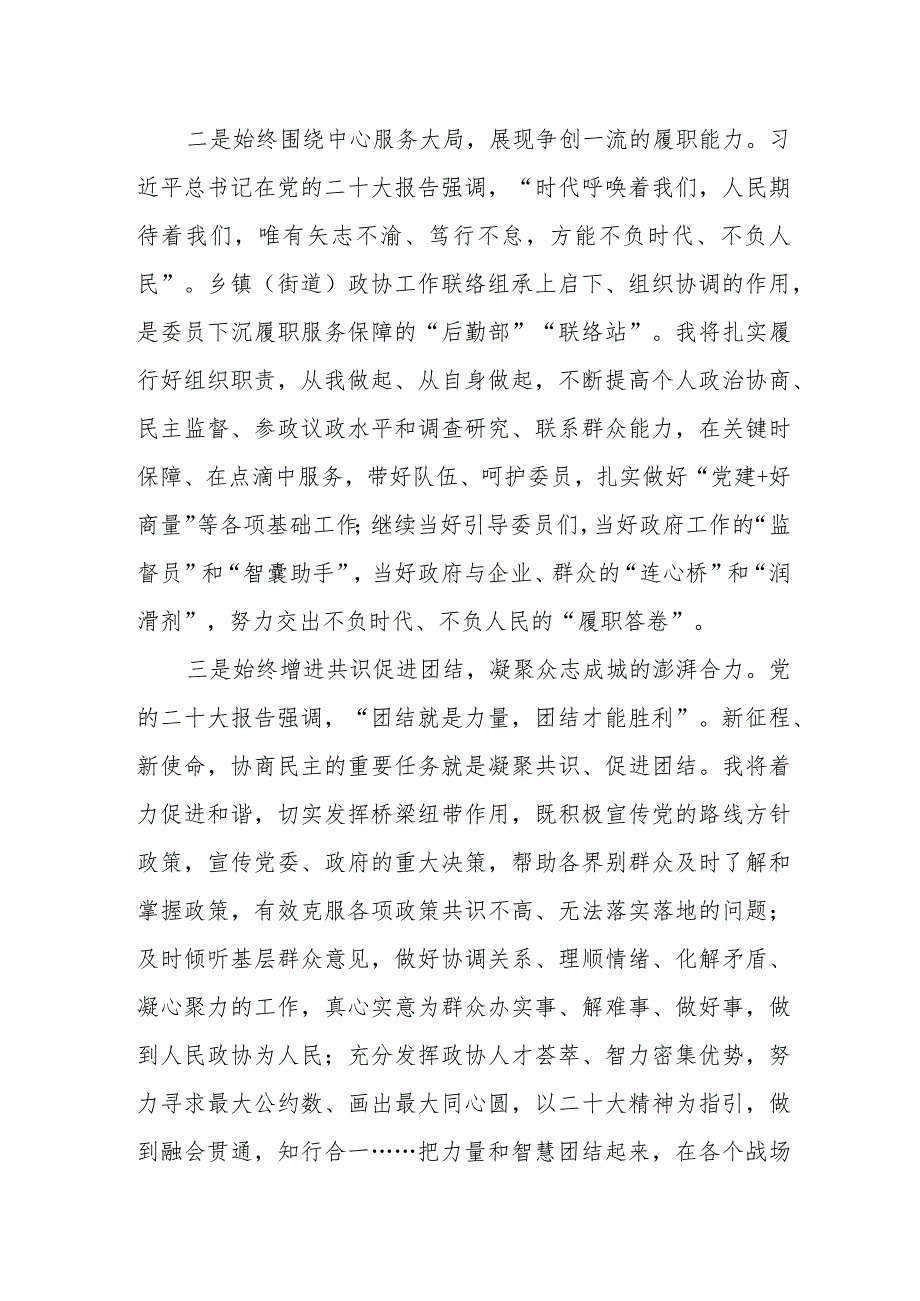 二是始终围绕中心服务大局，展现争创一流的履职能力。习
近平总书记在党的二十大报告强调，“时代呼唤着我们，人民期
待着我们，唯有矢志不渝、笃行不怠，方能不负时代、不负人
民”。乡镇（街道）政协工作联络组承上启下、组织协调的作用，
是委员下沉履职服务保障的“后勤部”“联络站”。我将扎实履
行好组织职责，从我做起、从自身做起，不断提高个人政治协商、
民主监督、参政议政水平和调查研究、联系群众能力，在关键时
保障、在点滴中服务，带好队伍、呵护委员，扎实做好“党建+好
商量”等各项基础工作；继续当好引导委员们，当好政府工作的“监
督员”和“智囊助手”，当好政府与企业、群众的“连心桥”和“润
滑剂”，努力交出不负时代、不负人民的“履职答卷”。
三是始终增进共识促进团结，凝聚众志成城的澎湃合力。党
的二十大报告强调，“团结就是力量，团结才能胜利”。新征程、
新使命，协商民主的重要任务就是凝聚共识、促进团结。我将着
力促进和谐，切实发挥桥梁纽带作用，既积极宣传党的路线方针
政策，宣传党委、政府的重大决策，帮助各界别群众及时了解和
掌握政策，有效克服各项政策共识不高、无法落实落地的问题；
及时倾听基层群众意见，做好协调关系、理顺情绪、化解矛盾、
凝心聚力的工作，真心实意为群众办实事、解难事、做好事，做
到人民政协为人民；充分发挥政协人才荟萃、智力密集优势，努
力寻求最大公约数、画出最大同心圆，以二十大精神为指引，做
到融会贯通，知行合一……把力量和智慧团结起来，在各个战场